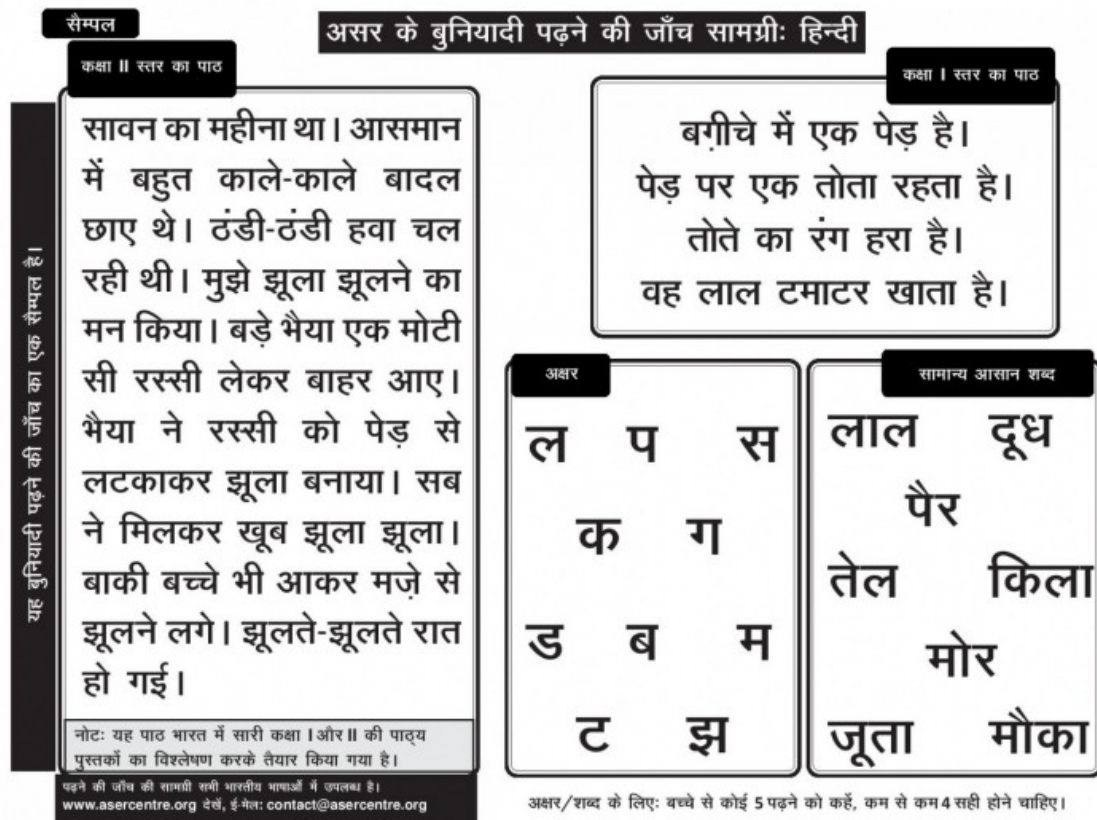 सैम्पल
असर के बुनियादी पढ़ने की जाँच सामग्रीः हिन्दी
कक्षा II स्तर का पाठ
सावन का महीना था। आसमान
में बहुत काले-काले बादल
छाए थे। ठंडी-ठंडी हवा चल
रही थी। मुझे झूला झूलने का
मन किया। बड़े भैया एक मोटी
सी रस्सी लेकर बाहर आए।
भैया ने रस्सी को पेड़ से
लटकाकर झूला बनाया। सब
ने मिलकर खूब झूला झूला।
बाकी बच्चे भी आकर मज़े से
झूलने लगे। झूलते-झूलते रात
हो गई।
नोटः यह पाठ भारत में सारी कक्षा I और II की पाठ्य
पुस्तकों का विश्लेषण करके तैयार किया गया है।
पढ़ने की जाँच की सामग्री सभी भारतीय भाषाओं में उपलब्ध है।
www.asercentre.org देखें, ई-मेल: contact@asercentre.org
यह बुनियादी पढ़ने की जाँच का एक सैम्पल है।
कक्षा I स्तर का पाठ
बग़ीचे में एक पेड़ है।
पेड़ पर एक तोता रहता है।
तोते का रंग हरा है।
वह लाल टमाटर खाता है।
अक्षर
ल प स
क ग
ड ब म
ट झ
सामान्य आसान शब्द
लाल दूध
पैर
तेल किला
मोर
जूता मौका
अक्षर/शब्द के लिएः बच्चे से कोई 5 पढ़ने को कहें, कम से कम 4 सही होने चाहिए।